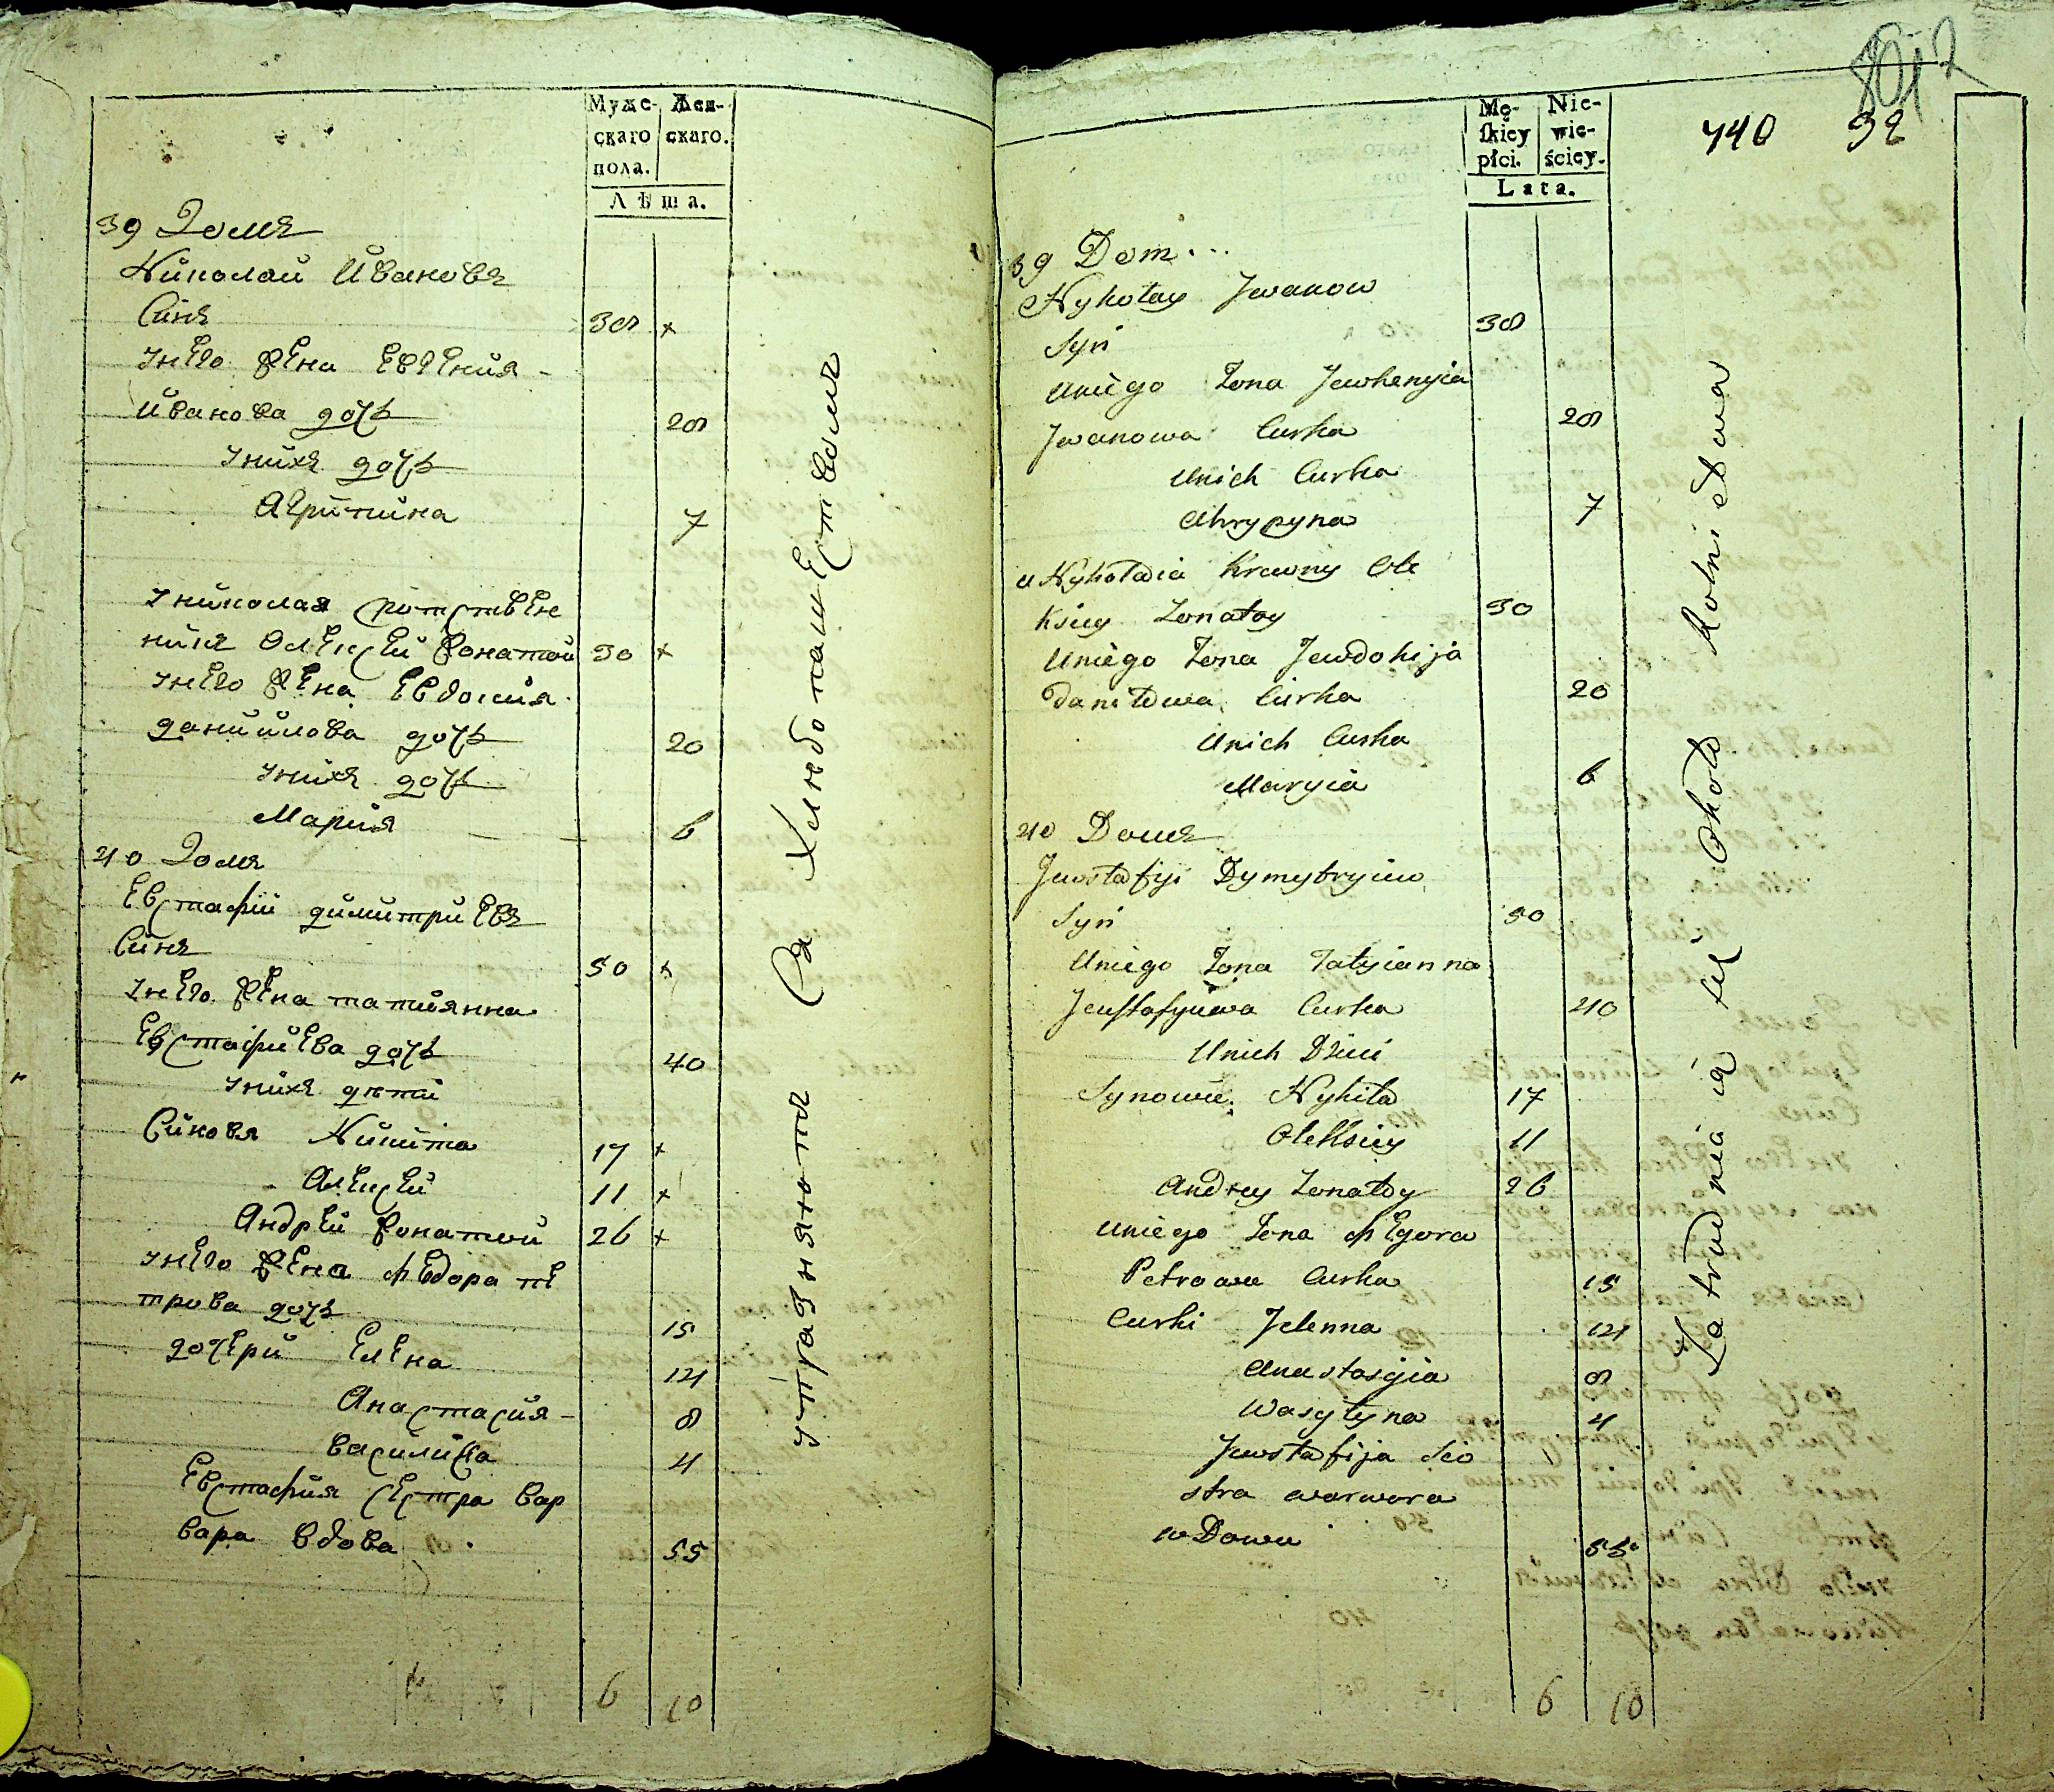 Муже-
скаго
пола.
Жен-
скаго.
Лѣта.
39 Домъ
Николай Ивановъ
Синъ 38 +
Унего жена Евгения -
Иванова дочь 28
Унихъ дочь
Агрипина 7
Униколая сротствен
никъ Олексей жонатой 30 +
Унего жена Евдокия
Даниилова дочь 20
Унихъ дочь
Мария 6
40 Домъ
Евстафий Димитриевъ
Синъ 50 +
Унего жена татиянна
Евстафиева дочь 40
Унихъ дѣти
Синовя Никита 17 +
Алексей 11 +
Андрей жонатой 26 +
Унего жена Федора пе
трова дочь 15
дочери Елена 14
Анастасия - 8
Василиса 4
Евстафия сестра вар
вара вдова 55
6 10
упражняются Въ Хлѣбопашественомъ
Mę-
ſkiey
płci.
Nie-
wie-
ściey.
Lata.
740 92
39 Dom...
Nykołay Jwanow
Syn 38
Uniego Żona Jewhenyia
Jwanowa Curka 28
Unich Curka
Ahrypyna 7
u Nykołaia Krewny Ole
ksiey Żonatoy 30
Uniego Żona Jewdokija
Daniłowa Curka 20
Unich Curka
Maryia 6
40 Домъ
Jewstafyi Dymytryiew
Syn 50
Uniego Żona Tatyianna
Jewstafyiewa Curka 40
Unich Dzieci
Synowie Nykita 17
Oleksiey 11
Andrey Żonatoy 26
Uniego Żona Fegora
Petrowa Curka 15
Curki Jelenna 14
Anastasyia 8
Wasyłyna 4
Jewstafija Sio
stra warwara
wDowa 55
6 10
Zatrudniaią się Około Rolnictwa